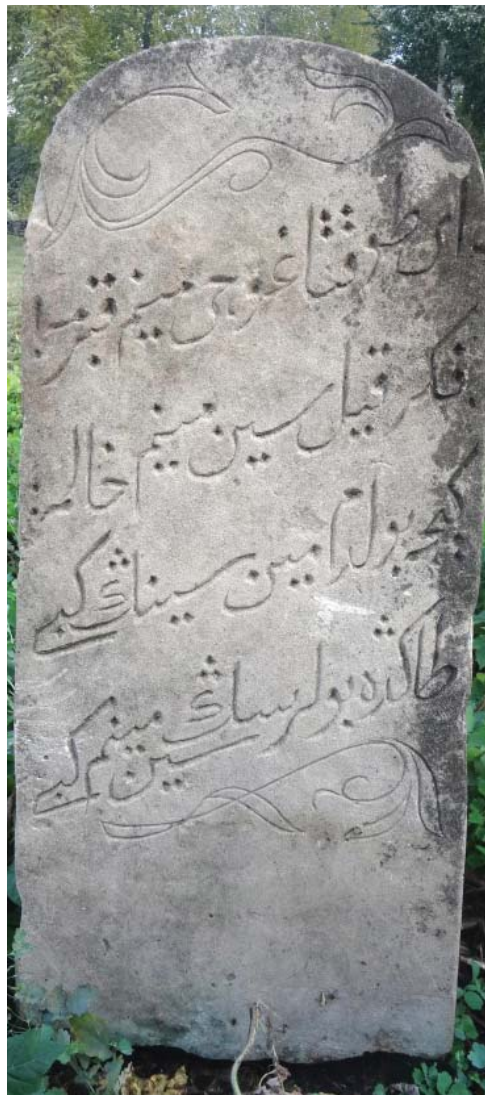 ای طوقتاغوچی مینم قبرمـا
فکر قیل سین مینم خالمه
کیچه بولدم مین سیناڭ کبے
طاڭده بولرساڭ سین مینم کبے